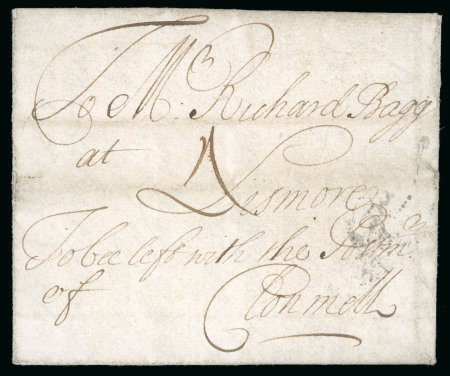 To Mr. Richard Bagg
at Lismore
To bee left with the Postmr
of Clonmell